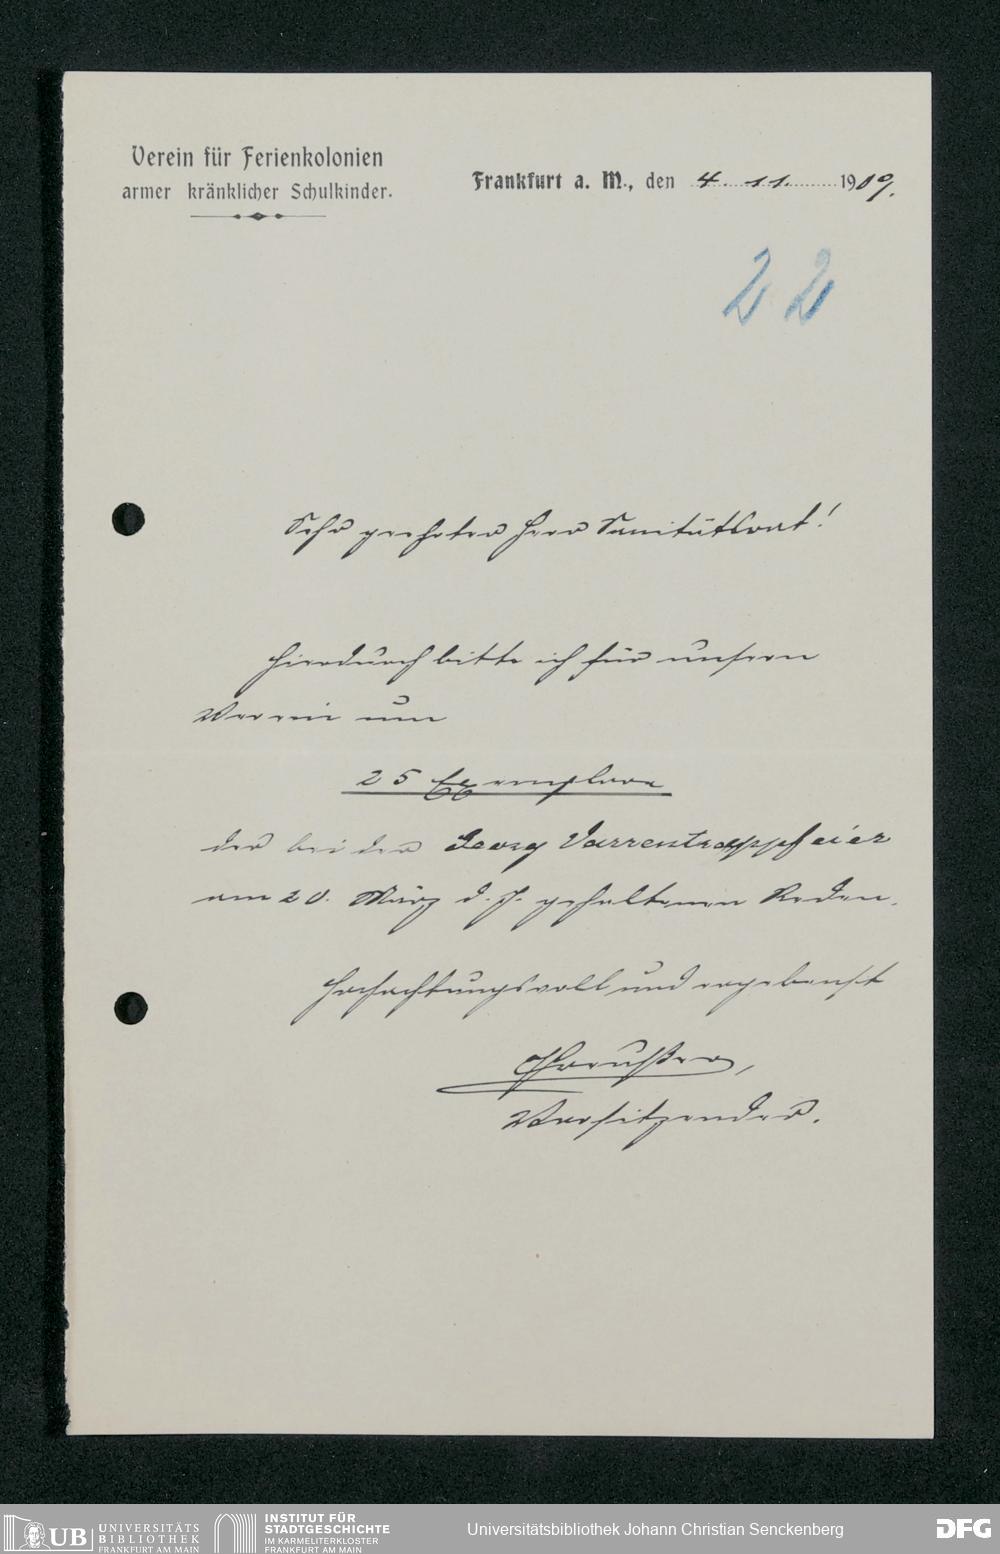 Verein für Ferienkolonien
armer kränklicher Schulkinder.
Frankfurt a. M., den 4. 11. 1909.
22
Sehr geehrter Herr Sanitätsrat!
Hierdurch bitte ich für unsern
Verein um
25 Exemplare
der bei der Georg Varrentrappfeier
am 20. März d. J. gehaltenen Reden.
Hochachtungsvoll und ergebenst
Vorsitzender.
UB UNIVERSITÄTS
BIBLIOTHEK
FRANKFURT AM MAIN
INSTITUT FÜR
STADTGESCHICHTE
IM KARMELITERKLOSTER
FRANKFURT AM MAIN
Universitätsbibliothek Johann Christian Senckenberg
DFG